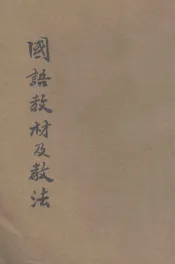 國語教材及教法